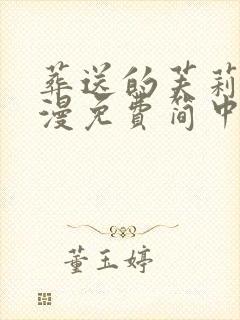 葬送的芙莉
漫免费简中
董玉婷